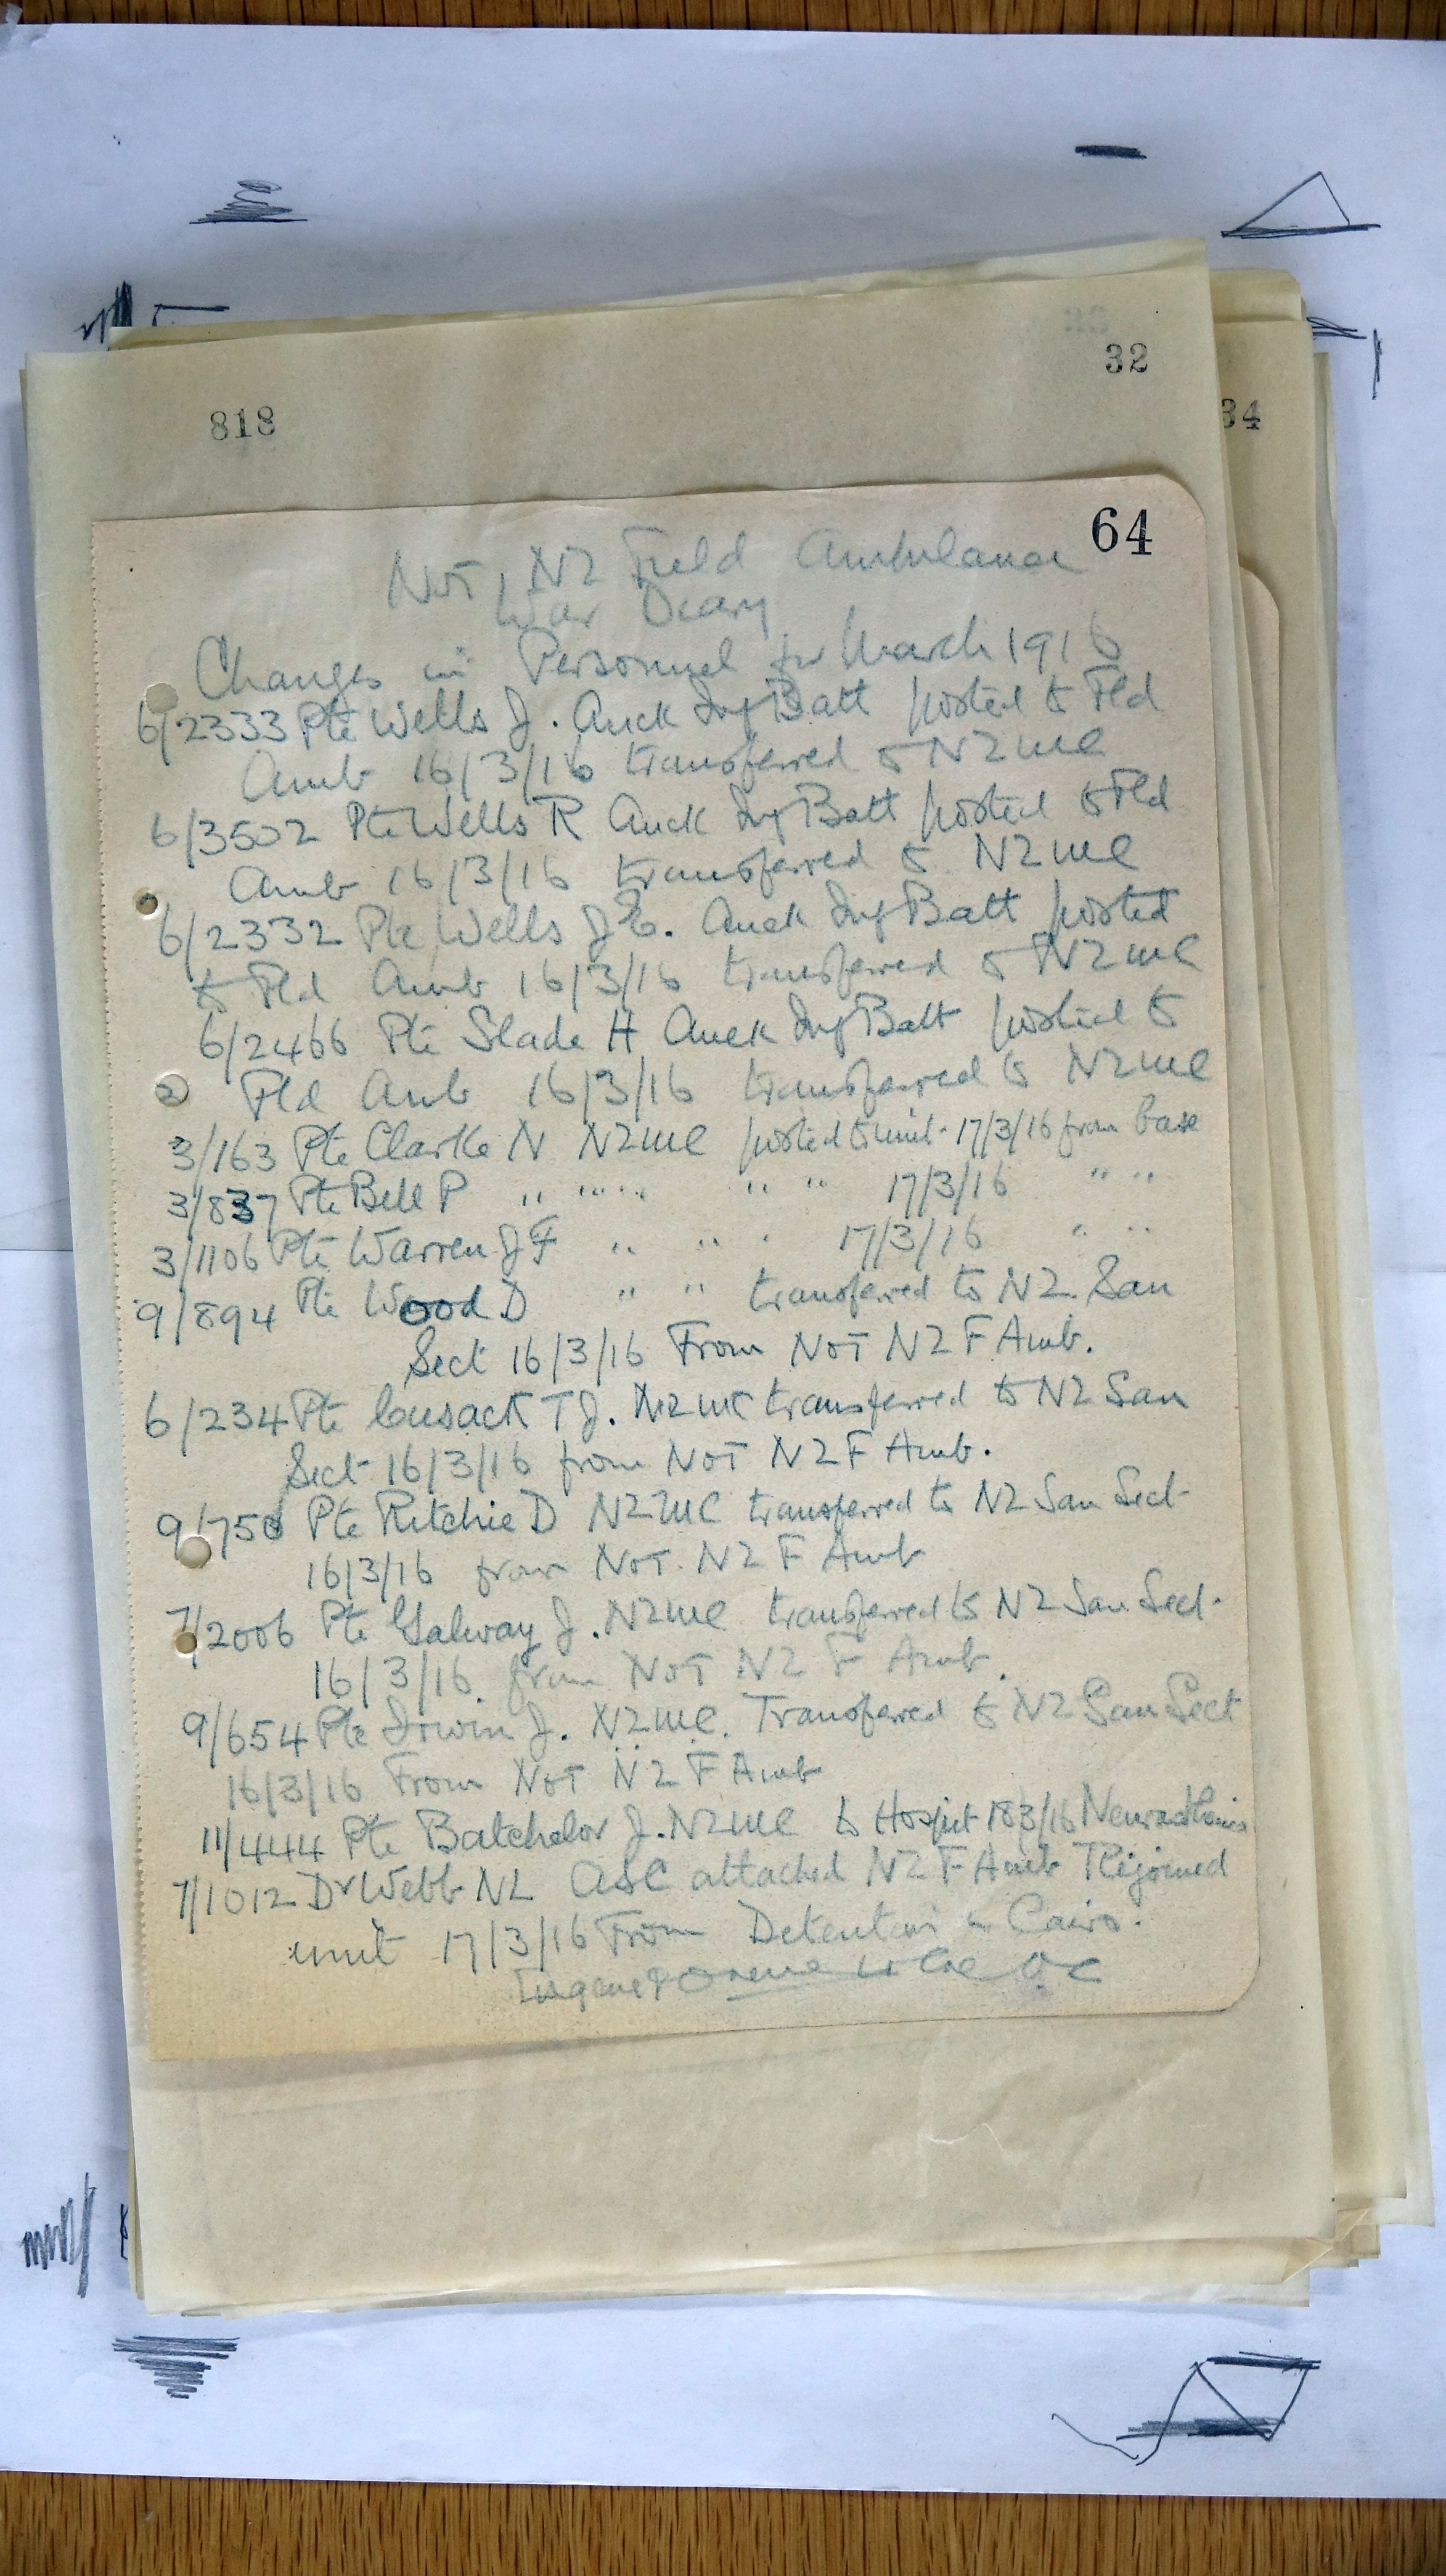 32
34
818
64
No 1 NZ Field Ambulance
War Diary
Changes in Personnel for March 1916
6/2333 Pte Wells J. Auck Inf Batt posted to Fld
Amb 16/3/16 transferred to NZMC
6/3502 Pte Wells R Auck Inf Batt posted to Fld
Amb 16/3/16 transferred to NZMC
6/2332 Pte Wells J E. Auck Inf Batt posted
to Fld Amb 16/3/16 transferred to NZMC
6/2466 Pte Slade H Auck Inf Batt posted to
Fld Amb 16/3/16 transferred to NZMC
3/163 Pte Clarke N NZMC posted to unit 17/3/16 from base
3/837 Pte Bell P " " " " " 17/3/16 " "
3/1106 Pte Warren J F " " " 17/3/16 " "
9/894 Pte Wood D " " transferred to NZ San
Sect 16/3/16 From No 1 NZ F Amb.
6/234 Pte Cusack T J. NZMC transferred to NZ San
Sect 16/3/16 from No 1 NZ F Amb.
9/750 Pte Ritchie D NZMC transferred to NZ San Sect
16/3/16 from No 1 NZ F Amb
7/2006 Pte Galway J. NZMC transferred to NZ San Sect.
16/3/16. from No 1 NZ F Amb.
9/654 Pte Irwin J. NZMC. Transferred to NZ San Sect
16/3/16 From No 1 NZ F Amb
11/444 Pte Batchelor J. NZMC to Hospit 18/3/16 Neurasthenia
7/1012 Dr Webb NL ASC attached NZ F Amb Rejoined
unit 17/3/16 From Detention in Cairo.
Eugene J O'Neill Lt Col OC